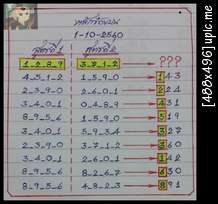 1-10-2560
สูตรที่ 1 สูตรที่ 2
1-2-8-9 3-7-1-2 ???
4-5-1-2 1-5-9-0 143
2-3-9-0 2-6-0-1 243
3-4-0-1 0-4-8-9 431
8-9-5-6 1-5-9-0 519
3-4-0-1 5-9-3-4 327
2-3-9-0 3-7-1-2 360
3-4-0-1 2-6-0-1 342
8-9-5-6 8-2-6-7 850
8-9-5-6 4-8-2-3 891
[488x496] upic.me